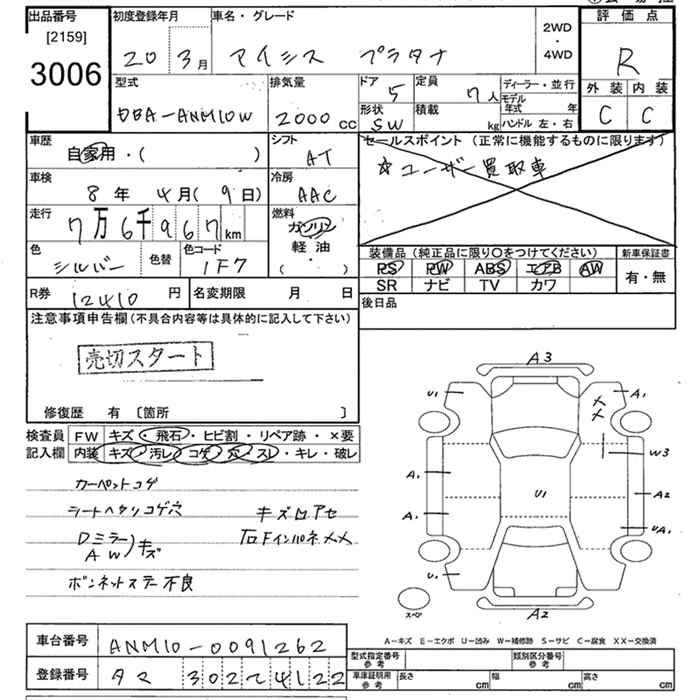 出品番号
[2159]
3006
初度登録年月
20年 3月
車名・グレード
アイシス プラタナ
2WD
・
4WD
評価点
R
外装 内装
C C
型式
DBA-ANM10W
排気量
2000cc
ドア
5
定員
7人
形状
SW
積載
kg
ディーラー・並行
モデル年式 年
ハンドル 左・右
車歴
自家用・( )
シフト
AT
車検
8年 4月(9日)
冷房
AAC
走行
7万6千967km
燃料
ガソリン
軽油
( )
色
シルバー
色替
色コード
1F7
セールスポイント(正常に機能するものに限ります)
☆ユーザー買取車
装備品(純正品に限り○をつけてください)
PS PW ABS エアB AW
SR ナビ TV カワ
新車保証書
有・無
R券
12410円
名変期限 月 日
後日品
注意事項申告欄(不具合内容等は具体的に記入して下さい)
売切スタート
修復歴 有 〔箇所 〕
検査員
記入欄
FW キズ・飛石・ヒビ割・リペア跡・×要
内装 キズ・汚レ・コゲ・穴・スレ・キレ・破レ
カーペットコゲ
シートヘタリコゲ穴
キズロアセ
Dミラー
AW)キズ
右Fインパネメメ
ボンネットステー不良
A3
U1
A1
W3
A1
U1
A2
A1
UA1
U1
スペア
A2
A-キズ E-エクボ U-凹み W-補修跡 S-サビ C-腐食 XX-交換済
車台番号
ANM10-0091262
登録番号
タマ 302 て 4122
型式指定番号
参考
類別区分番号
参考
車庫証明用
参考
長さ cm
幅 cm
高さ cm